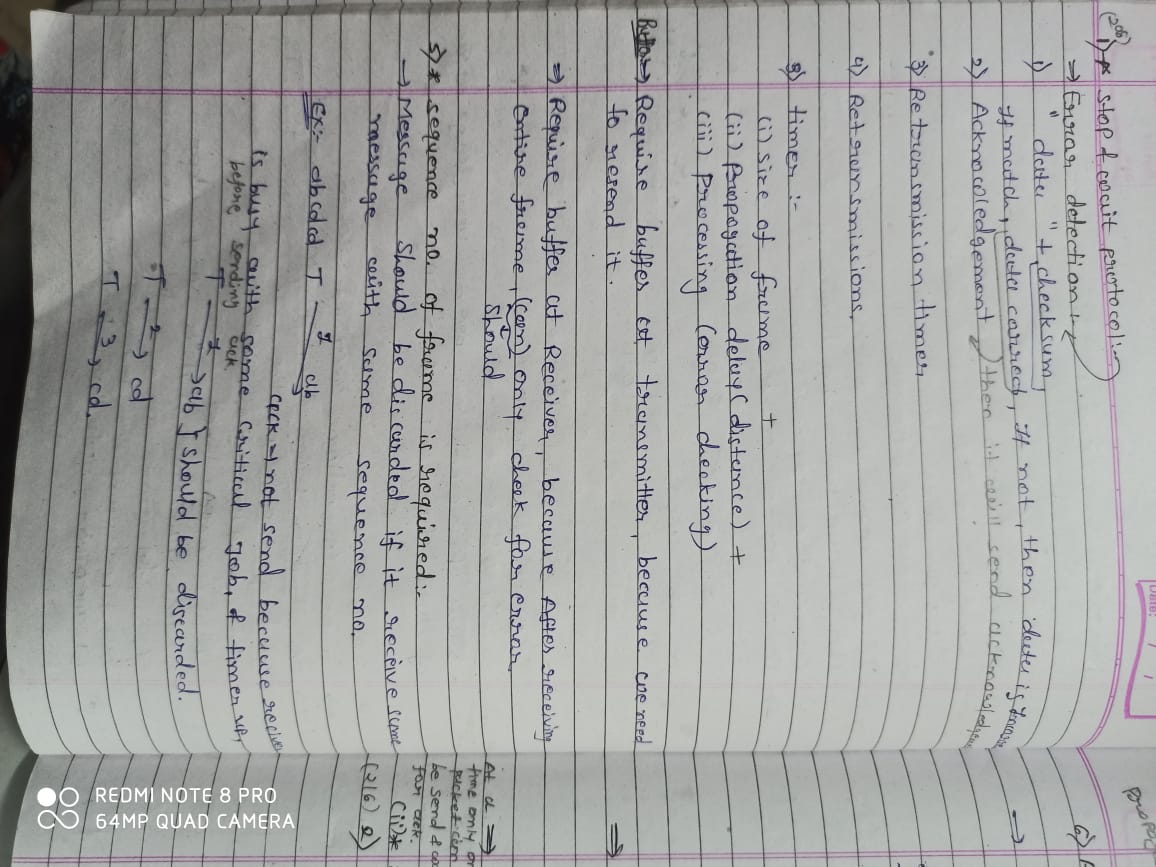 (206) 1) * stop & wait protocol :-
⇒ Error detection :-
1) " data " + checksum,
If match, data correct, If not, then data is
2) Acknowledgement) then it will send acknowledgement
3) Retransmission timer
4) Retransmissions.
3) timer :-
(i) size of frame +
(ii) Propogation delay (distance) +
(iii) Processing (error checking)
⇒) Require buffer at transmitter, because we need
to resend it.
⇒ Require buffer at Receiver, because After receiving
entire frame, (can) only check for error.
should
5) * sequence no. of frame is required :-
→ Message should be discarded if it receive same
message with same sequence no.
Ex:- abcdd T 1 → ab
ack → not send because receiver
is busy with some critical job, & timer up,
before sending ack
T 1 → ab } should be discarded.
T 2 → cd
T 3 → cd.
Date: / /
6)
→
⇒
At a ⇒
time only one
packet can
be send &
for ack.
(ii)*
(216) 2)
REDMI NOTE 8 PRO
64MP QUAD CAMERA